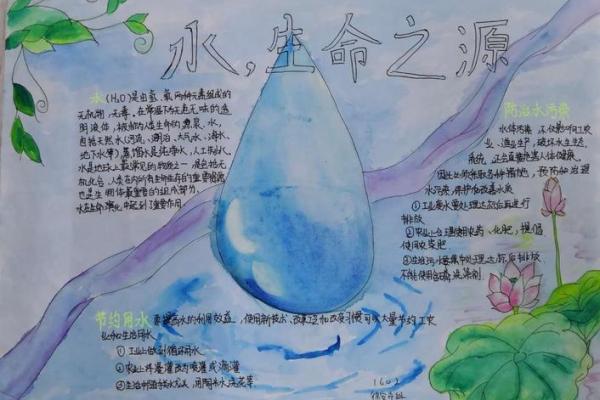 水,生命之源
水(H2O)是由氢、氧两种元素组成的
无机物,无毒。在常温下为无色无味的透
明液体,被称为人类生命的源泉。水,
包括天然水(河流、湖泊、大气水、海水、
地下水等)蒸馏水是纯净水,人工制水
水是地球上最常见的物质之一,是包括无
机化合、人类在内所有生命生存的重要资源
也是生物体最重要的组成部分,
水在生命演化中起到了重要作用。
防治水污染
水体污染
业、渔业生产,破坏水生态
系统,正直接危害人体健康。
因此必须采取各种措施,预防和治理
水污染,保护和改善水质
①工业废水要处理达标后再进行
排放
②农业上合理使用农药、化肥,提倡
使用农家肥
③生活污水要集中处理达标后再排放
不能使用含磷洗涤剂
节约用水
要提高水的利用效益,使用新技术、改革工艺和改变习惯可以大量节约工农
业和生活用水
①工业上做到循环用水
②农业上将漫灌改为喷灌或滴灌
③生活中洒在拖水龙头,用淘米水浇花等
1602